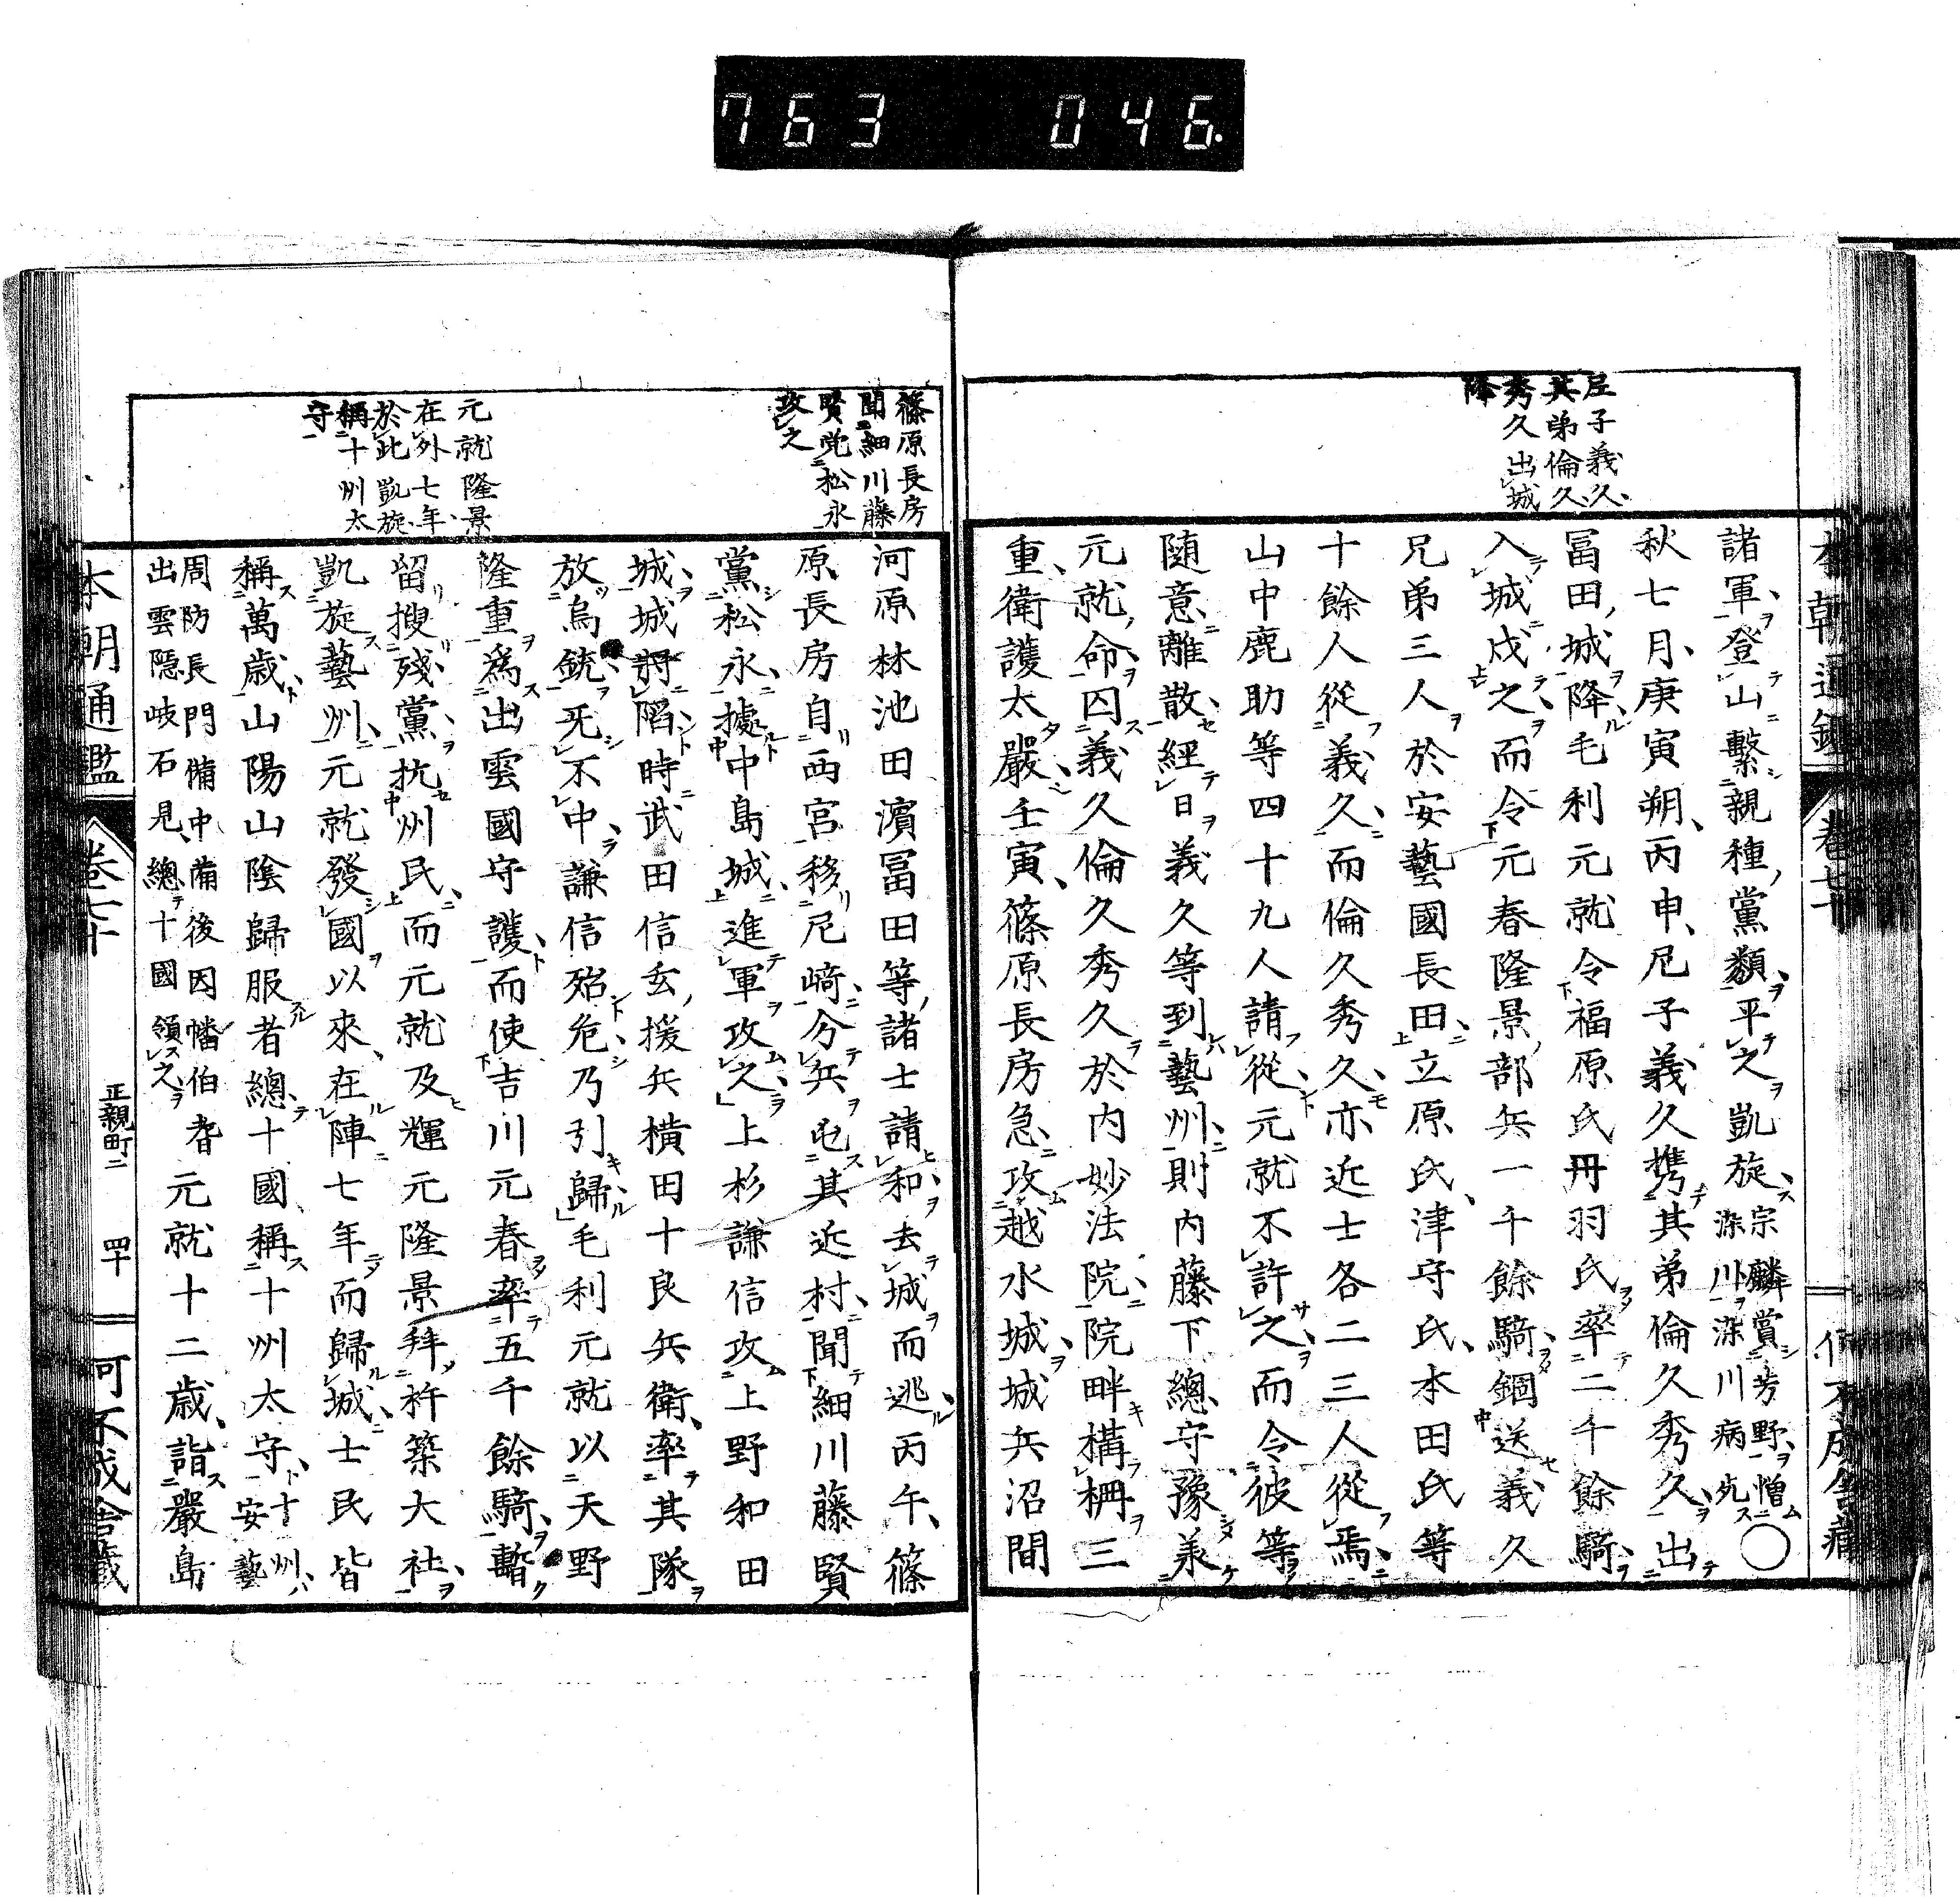 763 046
尼子義久
其弟倫久
秀久出城
降
諸軍登山繫親種黨類平之凱旋宗麟賞芳野憎
深川深川病死〇
秋七月庚寅朔丙申尼子義久携其弟倫久秀久出
冨田城降毛利元就令福原氏丹羽氏率二千餘騎
入城戍之而令元春隆景部兵一千餘騎錮送義久
兄弟三人於安藝國長田立原氏津守氏本田氏等
十餘人從義久而倫久秀久亦近士各二三人從焉
山中鹿助等四十九人請從元就不許之而令彼等
随意離散經日義久等到藝州則内藤下總守豫羕
元就命囚義久倫久秀久於内妙法院院畔構柵三
重衛護太嚴壬寅篠原長房急攻越水城城兵沼間
篠原長房
聞細川藤
賢党松永
攻之
元就隆景
在外七年
於此凱旋
稱十州太
守
河原林池田濱冨田等諸士請和去城而逃丙午篠
原長房自西宮移尼﨑分兵屯其近村聞細川藤賢
黨松永據中島城進軍攻之上杉謙信攻上野和田
城城將陷時武田信玄援兵横田十良兵衛率其隊
放鳥銃死不中謙信殆危乃引歸毛利元就以天野
隆重爲出雲國守護而使吉川元春率五千餘騎暫
留搜殘黨抗州民而元就及輝元隆景拜杵築大社
凱旋藝州元就發國以來在陣七年而歸城士民皆
稱萬歳山陽山陰歸服者總十國稱十州太守十州安藝
周防長門備中備後因幡伯耆
出雲隠岐石見總十國領之元就十二歳詣嚴島
本朝通鑑
卷七十
正親町二
四十
可不成舎藏